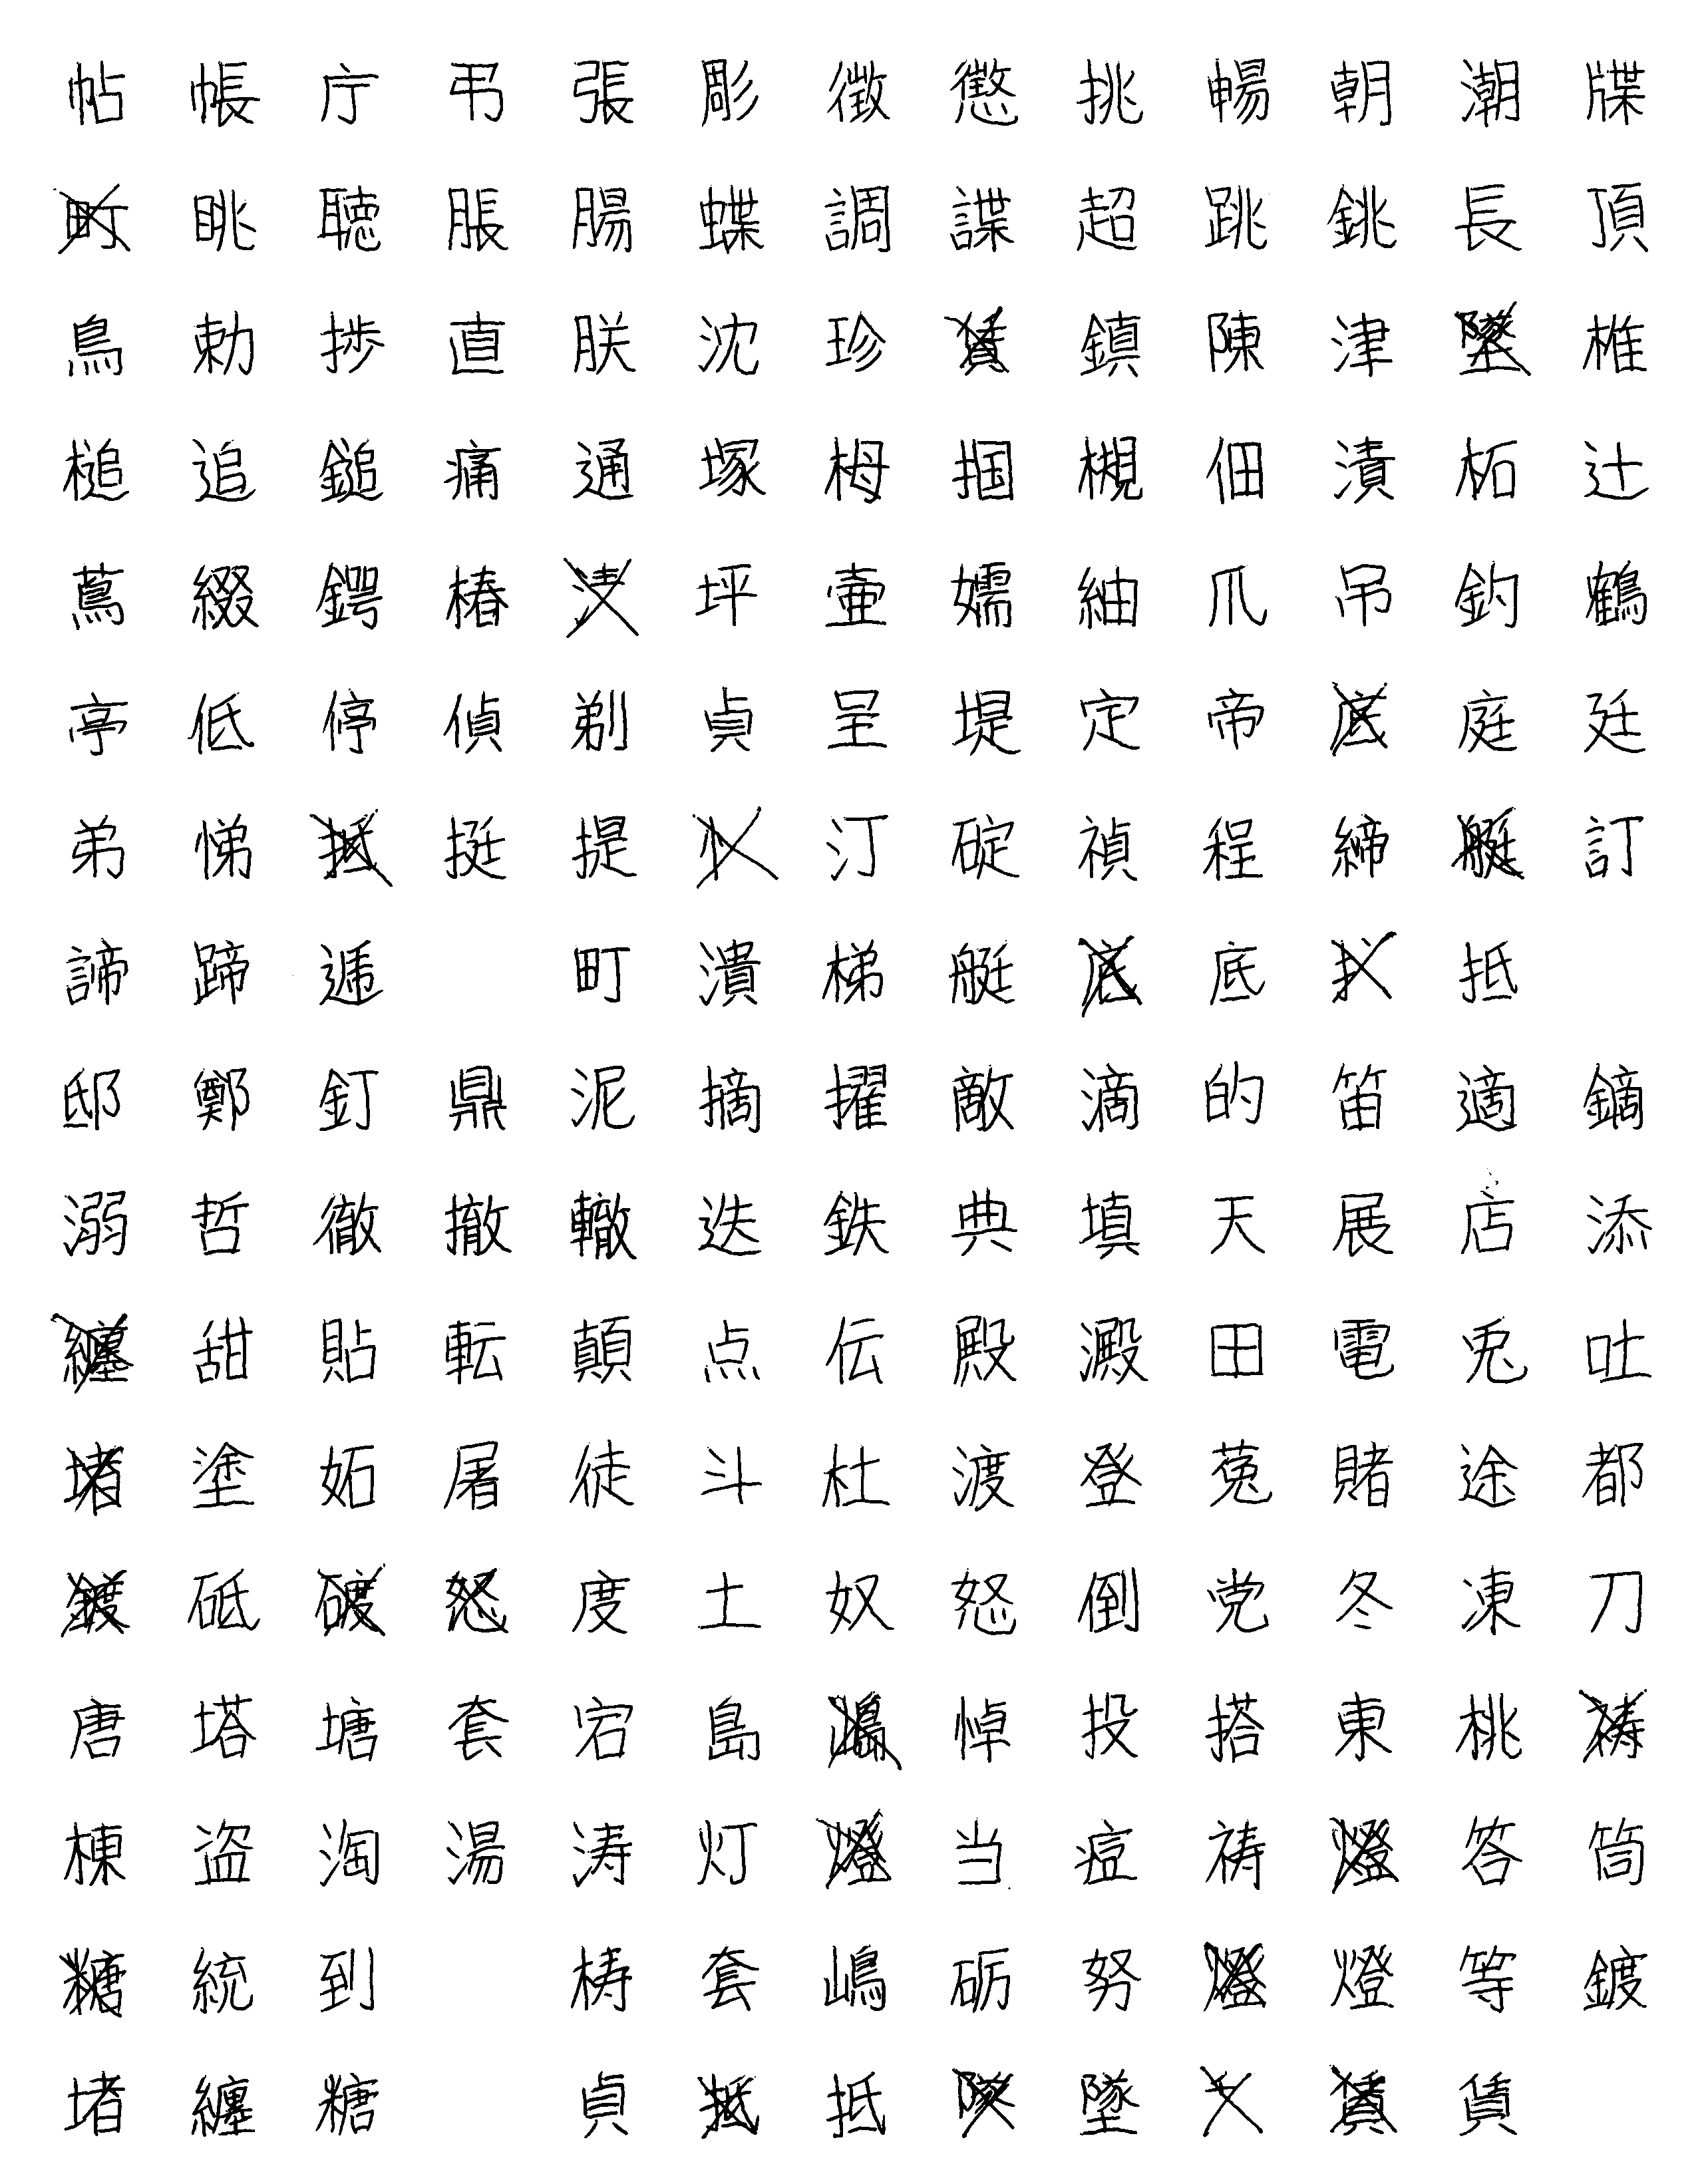 帖 帳 庁 弔 張 彫 徴 懲 挑 暢 朝 潮 牒
眺 聴 脹 腸 蝶 調 諜 超 跳 銚 長 頂
鳥 勅 捗 直 朕 沈 珍 鎮 陳 津 椎
槌 追 鎚 痛 通 塚 栂 掴 槻 佃 漬 柘 辻
蔦 綴 鍔 椿 坪 壷 嬬 紬 爪 吊 釣 鶴
亭 低 停 偵 剃 貞 呈 堤 定 帝 庭 廷
弟 悌 挺 提 汀 碇 禎 程 締 訂
諦 蹄 逓 町 潰 梯 艇 底 抵
邸 鄭 釘 鼎 泥 摘 擢 敵 滴 的 笛 適 鏑
溺 哲 徹 撤 轍 迭 鉄 典 填 天 展 店 添
甜 貼 転 顛 点 伝 殿 澱 田 電 兎 吐
塗 妬 屠 徒 斗 杜 渡 登 菟 賭 途 都
砥 度 土 奴 怒 倒 党 冬 凍 刀
唐 塔 塘 套 宕 島 悼 投 搭 東 桃
棟 盗 淘 湯 涛 灯 当 痘 祷 答 筒
統 到 梼 套 嶋 砺 努 燈 等 鍍
堵 纏 糖 貞 抵 墜 賃